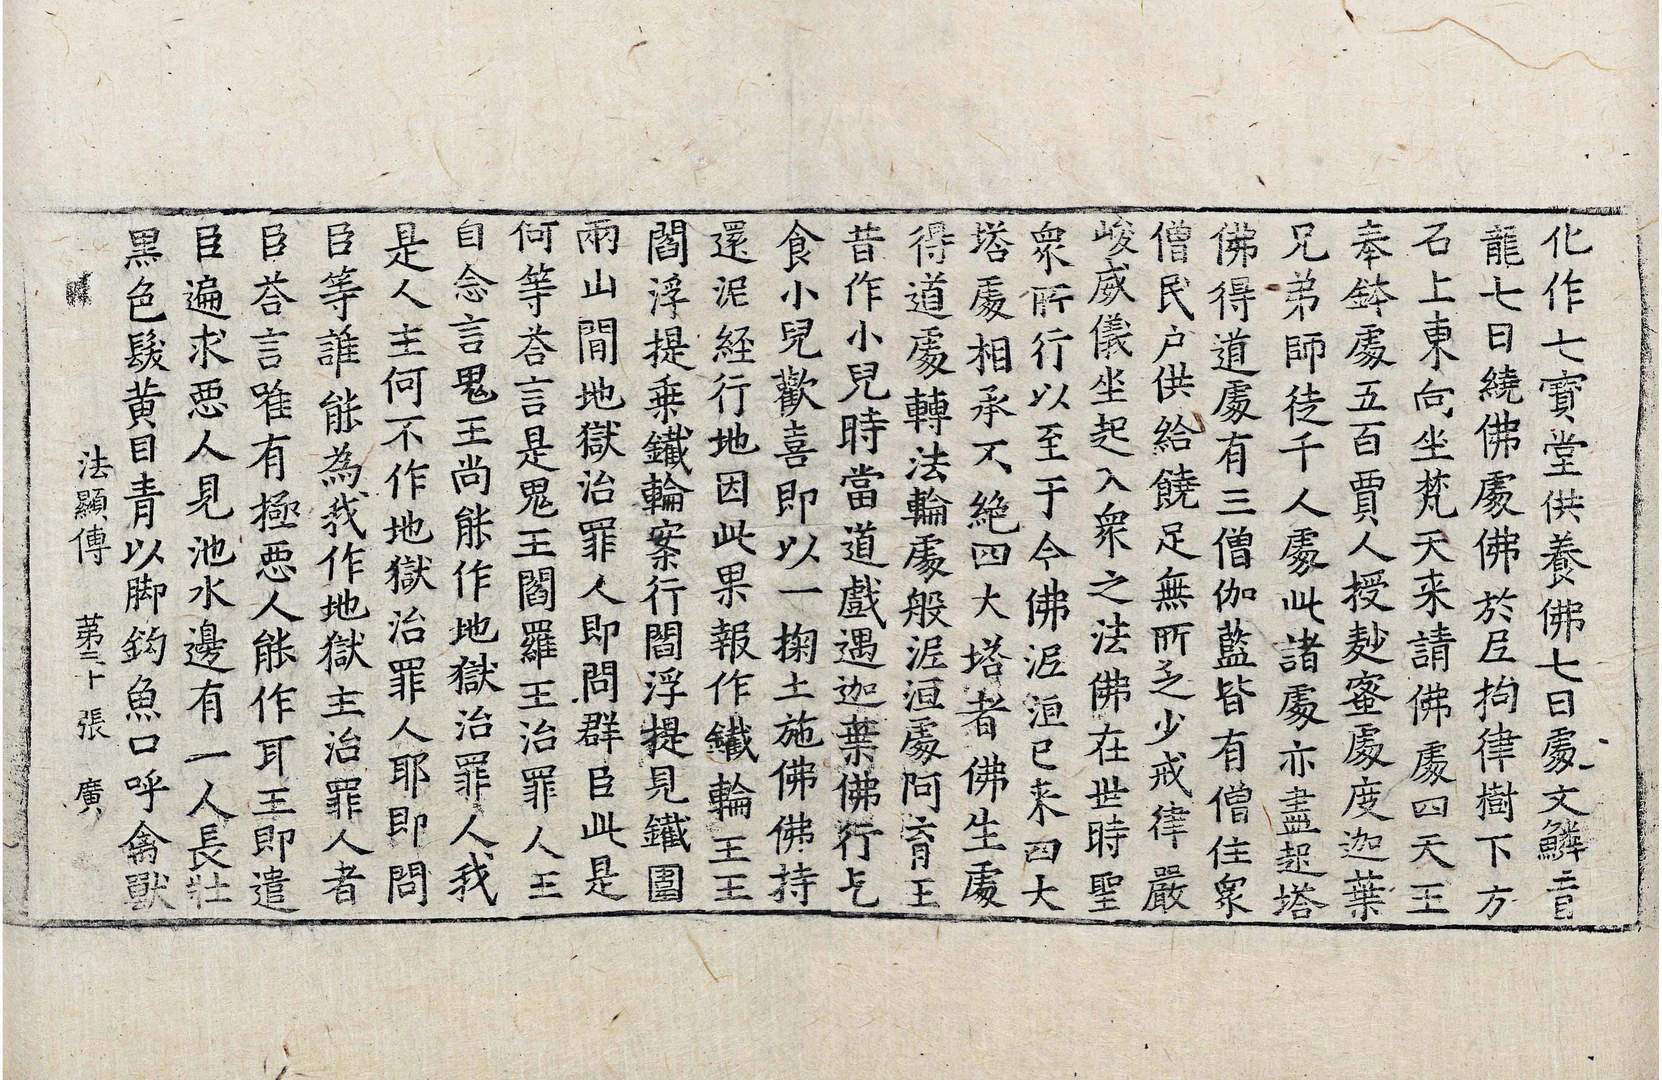 化作七寶堂供養佛七日處文鱗盲
龍七日繞佛處佛於尼拘律樹下方
石上東向坐梵天来請佛處四天王
奉鉢處五百賈人授麨蜜處度迦葉
兄弟師徒千人處此諸處亦盡起塔
佛得道處有三僧伽藍皆有僧住衆
僧民户供給饒足無所乏少戒律嚴
峻威儀坐起入衆之法佛在世時聖
衆所行以至于今佛泥洹已来四大
塔處相承不絶四大塔者佛生處
得道處轉法輪處般泥洹處阿育王
昔作小兒時當道戲遇迦葉佛行乞
食小兒歡喜即以一掬土施佛佛持
還泥経行地因此果報作鐵輪王王
閻浮提乗鐵輪案行閻浮提見鐵圍
兩山間地獄治罪人即問群臣此是
何等荅言是鬼王閻羅王治罪人王
自念言鬼王尚能作地獄治罪人我
是人主何不作地獄治罪人耶即問
臣等誰能為我作地獄主治罪人者
臣荅言唯有極惡人能作耳王即遣
臣遍求惡人見池水邊有一人長壮
黒色髮黄目青以脚鈎魚口呼禽獸
法顯傳 苐三十張 廣